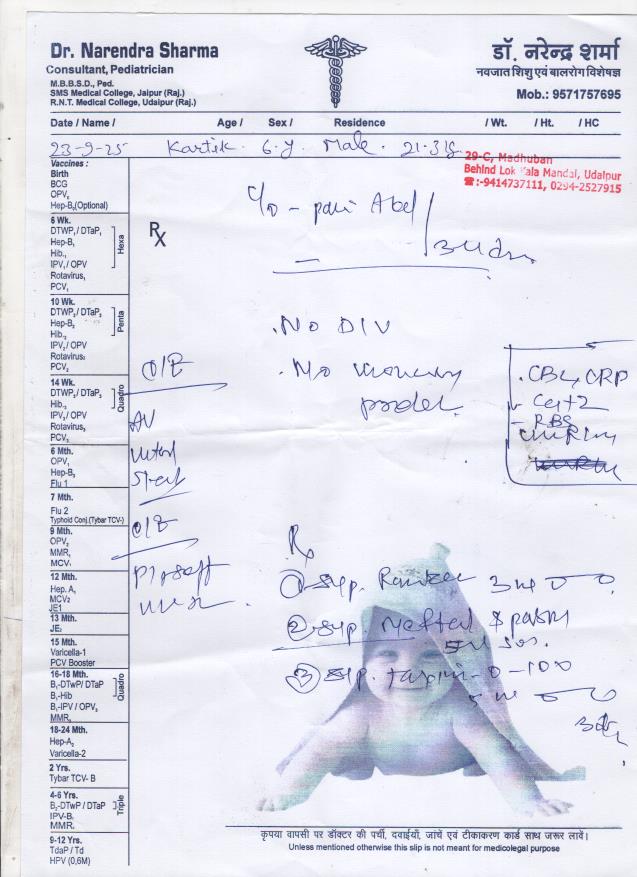 Dr. Narendra Sharma
Consultant, Pediatrician
M.B.B.S.D., Ped.
SMS Medical College, Jaipur (Raj.)
R.N.T. Medical College, Udaipur (Raj.)
डॉ. नरेन्द्र शर्मा
नवजात शिशु एवं बालरोग विशेषज्ञ
Mob.: 9571757695
Date / Name / Age / Sex / Residence / Wt. / Ht. / HC
23-9-25 Kartik. 6.y. Male.
29-C, Madhuban
Behind Lok Kala Mandal, Udaipur
☎:-9414737111, 0294-2527915
Vaccines :
Birth
BCG
OPV,
Hep-B,(Optional)
6 Wk.
DTWP,/ DTaP,
Hep-B,
Hib.,
IPV,/ OPV
Rotavirus,
PCV,
Hexa
10 Wk.
DTWP₂/ DTaP₂
Hep-B₂
Hib.₂
IPV₂/ OPV
Rotavirus₂
PCV₂
Penta
14 Wk.
DTWP₃/ DTaP₃
Hib.₃
IPV₃/ OPV
Rotavirus₃
PCV₃
Quadro
6 Mth.
OPV,
Hep-B₃
Flu 1
7 Mth.
Flu 2
Typhoid Conj.(Tybar TCV-)
9 Mth.
OPV₂
MMR,
MCV,
12 Mth.
Hep. A,
MCV₂
JE1
13 Mth.
JE₂
15 Mth.
Varicella-1
PCV Booster
16-18 Mth.
B₁-DTwP/ DTaP
B₁-Hib
B₁-IPV / OPV₃
MMR₂
Quadro
18-24 Mth.
Hep-A₂
Varicella-2
2 Yrs.
Tybar TCV- B
4-6 Yrs.
B₂-DTwP / DTaP
IPV-B₂
MMR₃
Triple
9-12 Yrs.
TdaP / Td
HPV (0,6M)
Rx
C/o - pain Abd
. No D/V
O/E
. CBC, CRP
RBS
O/E
P/A soft
Rx
① Syp.
② Syp. Meftal Spasm
③ Syp. Taxim-O-100
कृपया वापसी पर डॉक्टर की पर्ची, दवाईयाँ, जांचें एवं टीकाकरण कार्ड साथ जरूर लावें।
Unless mentioned otherwise this slip is not meant for medicolegal purpose